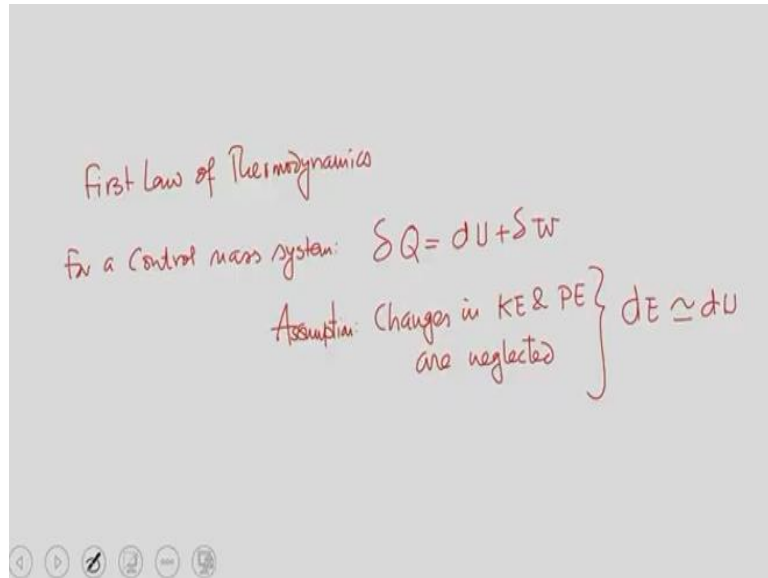 First Law of Thermodynamics
For a Control mass system: δQ = dU + δW
Assumption: Changes in KE & PE } dE ≃ dU
are neglected